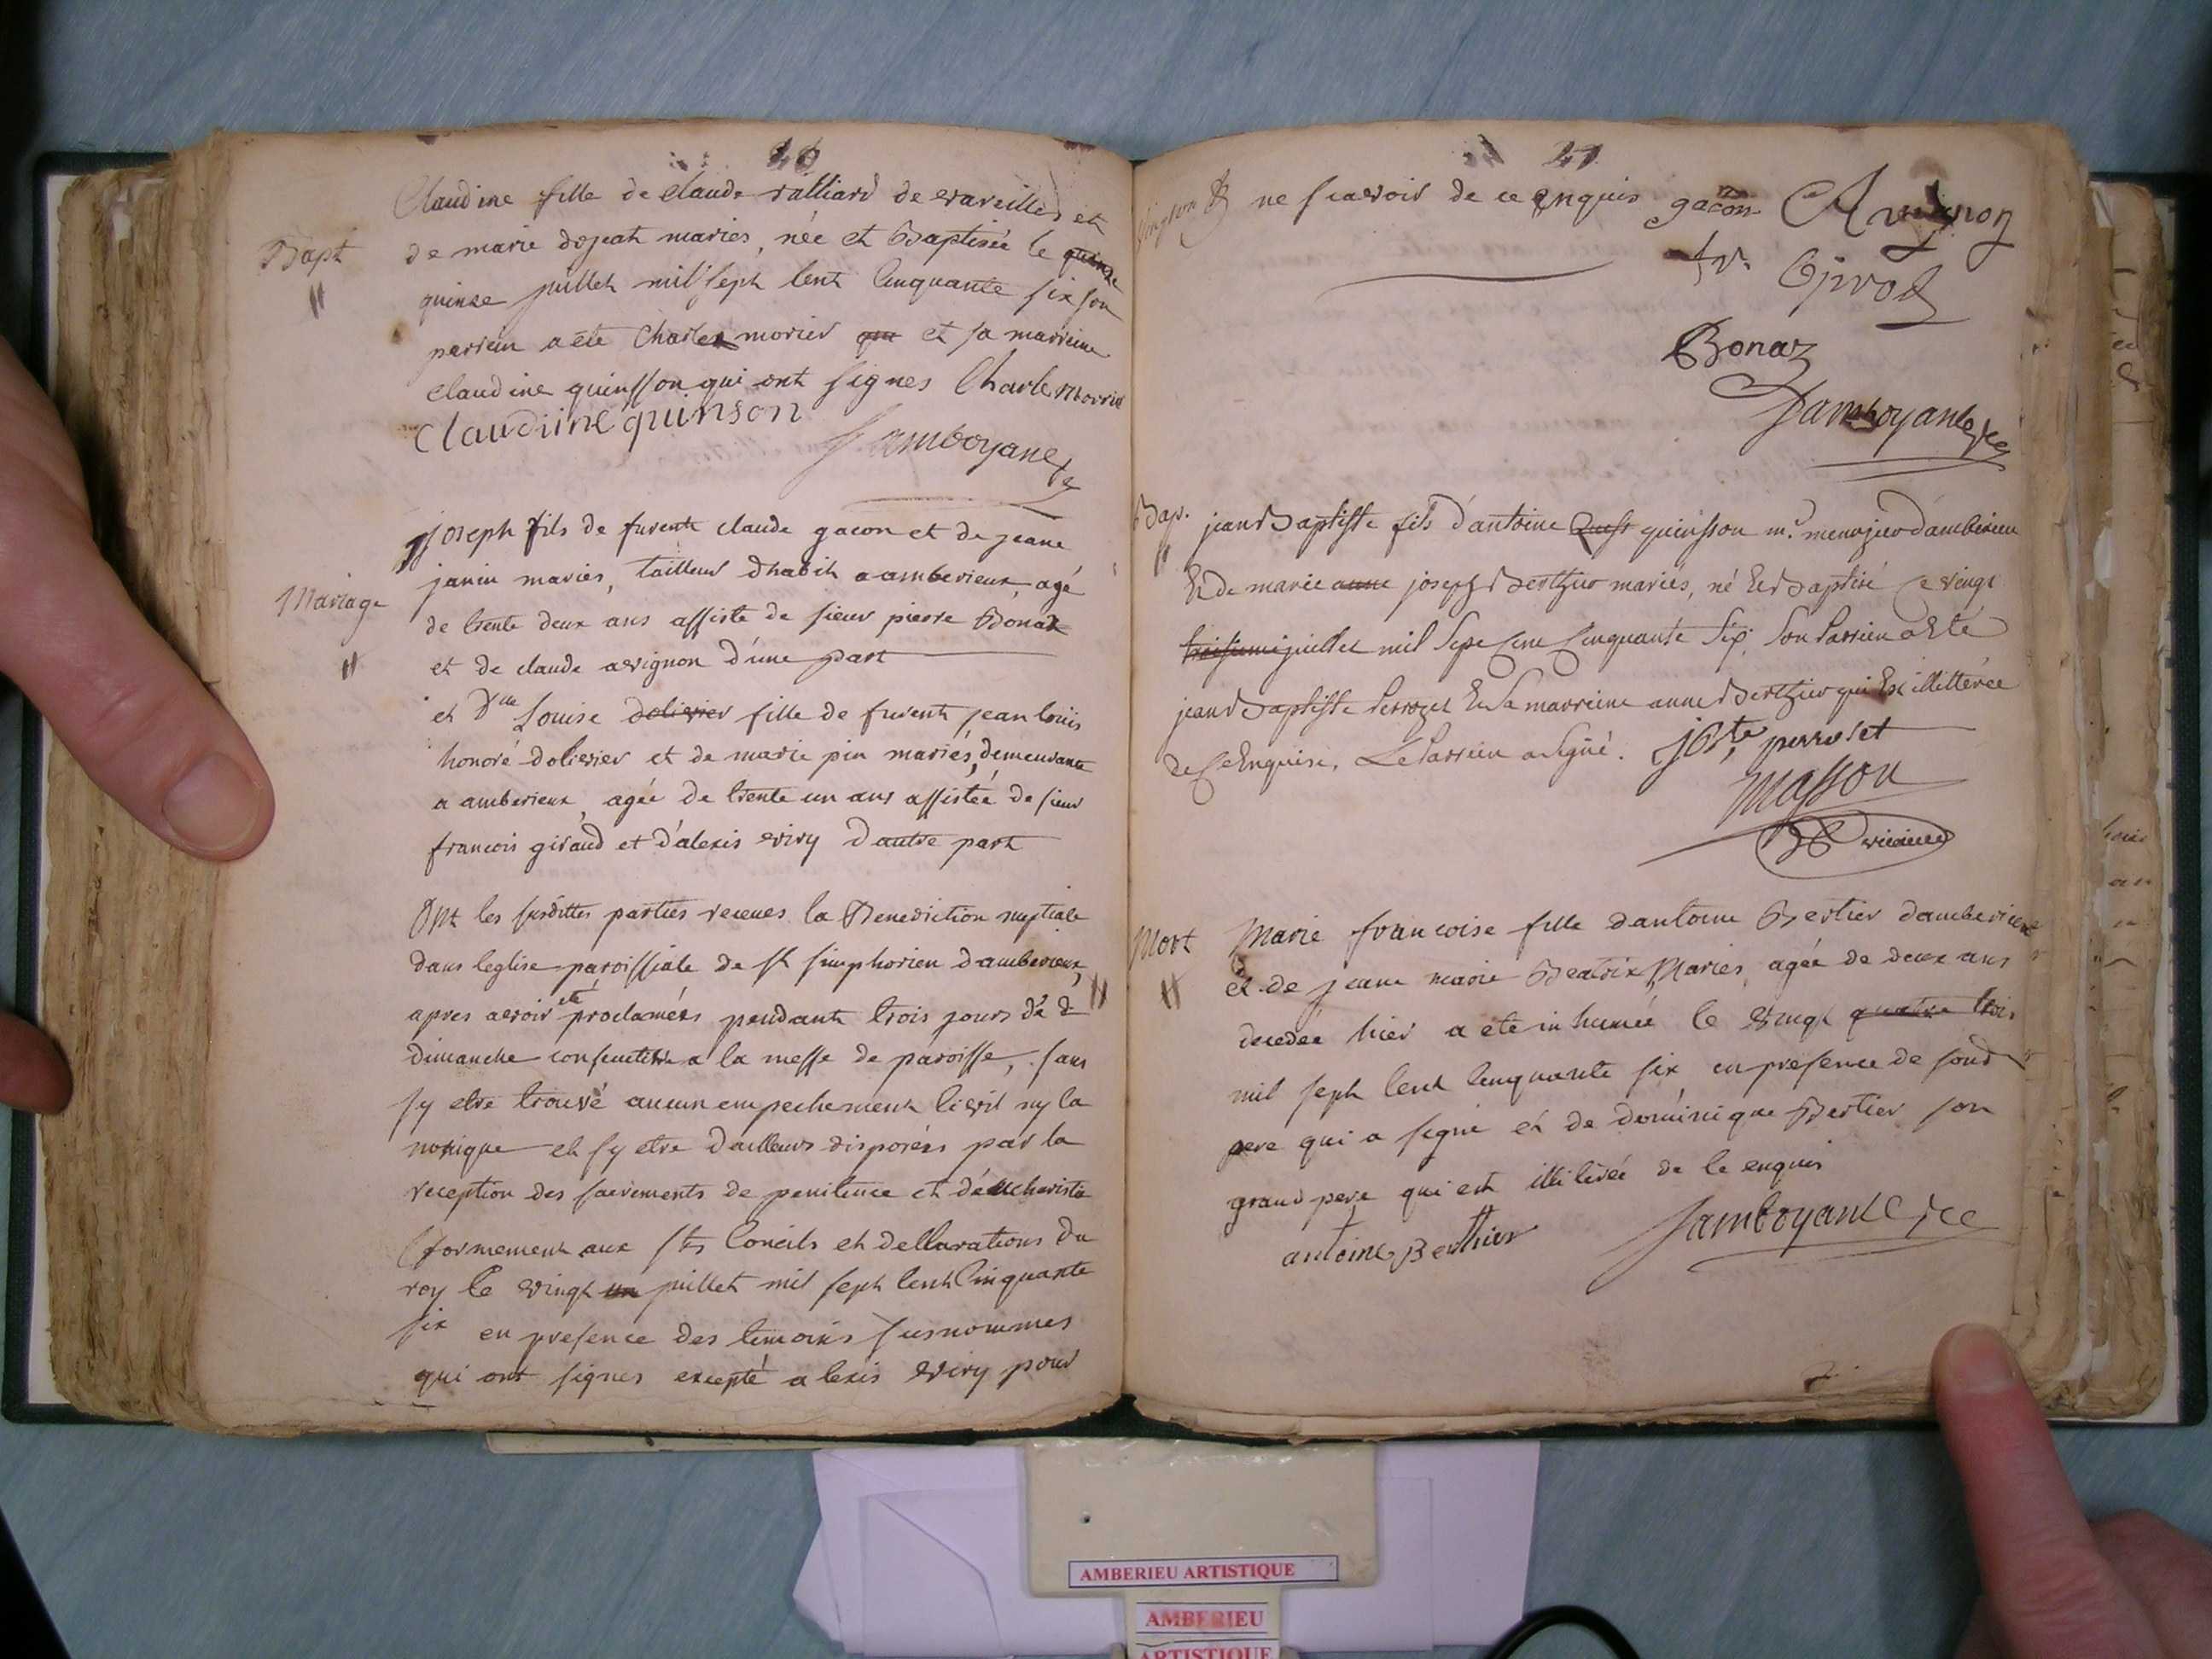 26
Bapt
Claudine fille de claude ralliard de vareilles et
de marie dojeat mariés, née et Baptisée le quinze
quinse juillet mil sept Cent Cinquante six son
parrein a été Charles morier qui et sa marreine
claudine quinsson qui ont signes Charle morrie
Claudiine quinson
Jamboyant
Mariage
joseph fils de furent claude gacon et de jeane
janin mariés, tailleur dhabit a amberieux, agé
de trente deux ans assiste de sieur pierre Bonaz
et de claude avignon d'une part
et Dlle Louise dolivier fille de furent jean louis
honoré dolivier et de marie pin mariés, demeurante
a amberieux, agée de trente un ans assistée de sieur
francois giraud et d'alexis viry d'autre part
Ont les susdittes parties receues la Benediction nuptiale
dans leglise paroissiale de st simphorien damberieux,
apres avoir été proclamées pendant trois jours de
dimanche consecutive a la messe de paroisse, sans
sy etre trouvé aucun empechement Civil ny Ca
nonique et sy etre dailleurs disposées par la
reception des sacrements de penitence et d'eucharistie
Cformement aux sts Concils et declarations du
roy le vingt un juillet mil sept Cent Cinquante
six en presence des temoins susnommes
qui ont signes excepté alexis viry pour
27
ne scavoir de ce enquis gacon Avignon
Bonaz
Jamboyant vce
Bap.
jean Baptiste fils d'antoine quinsson mr. menuzier d'amberieu
Et de marie anne joseph Berthier mariés, né Et Baptisé ce vingt
troisieme juillet mil Sept Cent Cinquante Six, Son Parrein a Eté
jean Baptiste Perrozet Et Sa marreine anne Berthier qui Est illettérée
de Ce Enquise, Le Parrein a Signé. jBte perroset
Masson
vicaire
Mort
Marie francoise fille dantoine Bertier damberieux
et de jeane marie Beatrix Mariés, agée de deux ans
decedée hier a ete inhumée le vingt quatre trois
mil sept Cent Cinquante six en presence de sond
pere qui a signé et de dominique Bertier son
grand pere qui est illiterée de Ce enquis
antoine Berthier
Jamboyant vce
AMBERIEU ARTISTIQUE
AMBERIEU
ARTISTIQUE